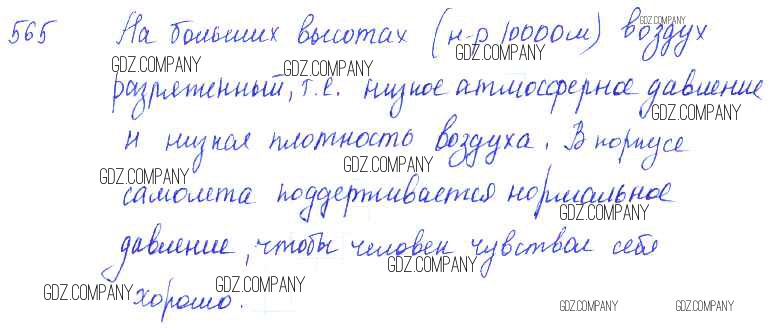 565 На больших высотах (н-р 10000м) воздух
разряженный, т.е. низкое атмосферное давление
и низкая плотность воздуха. В корпусе
самолета поддерживается нормальное
давление, чтобы человек чувствовал себя
хорошо.
GDZ.COMPANY
GDZ.COMPANY
GDZ.COMPANY
GDZ.COMPANY
GDZ.COMPANY
GDZ.COMPANY
GDZ.COMPANY
GDZ.COMPANY
GDZ.COMPANY
GDZ.COMPANY
GDZ.COMPANY
GDZ.COMPANY
GDZ.COMPANY